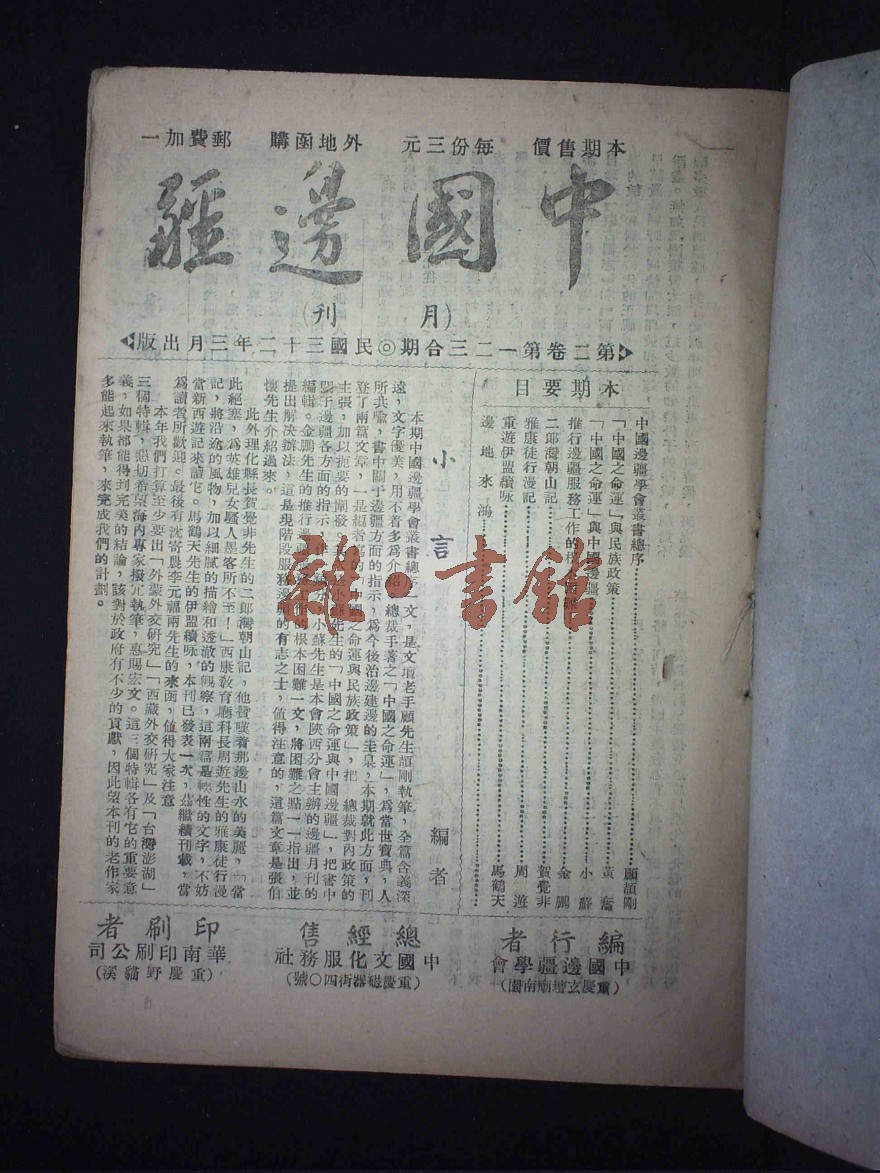 本期售價 每份三元 外地函購 郵費加一
中國邊疆
(月刊)
第二卷第一二三合期◎民國三十二年三月出版
本期要目
中國邊疆學會叢書總序……顧頡剛
「中國之命運」與民族政策……黃奮
「中國之命運」與中國邊疆……小蘇
推行邊疆服務工作的根本困難……金鵬
二郎灣朝山記……賀覺非
雅康徒行漫記……周遊
重遊伊盟續咏……馬鶴天
邊地來鴻……
小言 編者
本期中國邊疆學會叢書總序一文,是文壇老手顧先生頡剛執筆,全篇含義深
遠,文字優美,用不着多爲介紹。總裁手著之「中國之命運」,爲當世寶典,人
所共喩,書中關于邊疆方面的指示,爲今後治邊建邊的圭臬,本期就此方面,刊
登了兩篇文章,一是編者寫的「中國之命運與民族政策」,把 總裁對內政策的
主張,加以扼要的闡發,小蘇先生的「中國之命運與中國邊疆」,把書中
關于邊疆各方面的指示,小蘇先生是本會陝西分會主辦的邊疆月刊的
編輯。金鵬先生的推行邊疆工作的根本困難一文,將困難之點一一指出,並
提出解决辦法,這是現階段服務邊疆的有志之士,值得注意的,這篇文章是張伯
懷先生介紹過來。
此外理化縣長賀覺非先生的二郎灣朝山記,他贊嘆着那邊山水的美麗,「當
此絕塞,爲英雄兒女騷人墨客所不至!」西康敎育廳科長周遊先生的雅康徒行漫
記,將沿途的風物,加以細膩的描繪和透澈的觀察,這兩篇是軟性的文字,不妨
當新西遊記來讀它。馬鶴天先生的伊盟續咏,本刊已發表一次,茲繼續刊載,當
爲讀者所歡迎。最後有沈寄農李元福兩先生的來函,值得大家注意
本年我們打算至少要出「外蒙外交硏究」「西藏外交硏究」及「台灣澎湖」
三個特輯,懇切希望海內專家撥冗執筆,惠賜宏文。這三個特輯各有它的重要意
義,如果都能得到完美的結論,該對於政府有不少的貢獻,因此望本刊的老作家
多能起來執筆,來完成我們的計劃。
編行者
中國邊疆學會
(重慶玄壇廟南園)
總經售
中國文化服務社
(重慶磁器街四〇號)
印刷者
華南印刷公司
(重慶野貓溪)
雜·書館